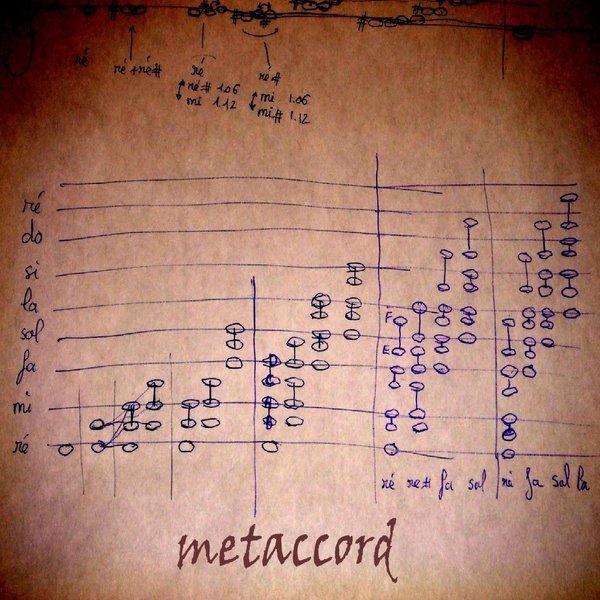 ré
ré + ré#
ré
ré# 1.06
mi 1.12
ré#
mi 1.06
mi# 1.12
ré
do
si
la
sol
fa
mi
ré
F
E
ré ré# fa sol
ré fa sol la
metaccord